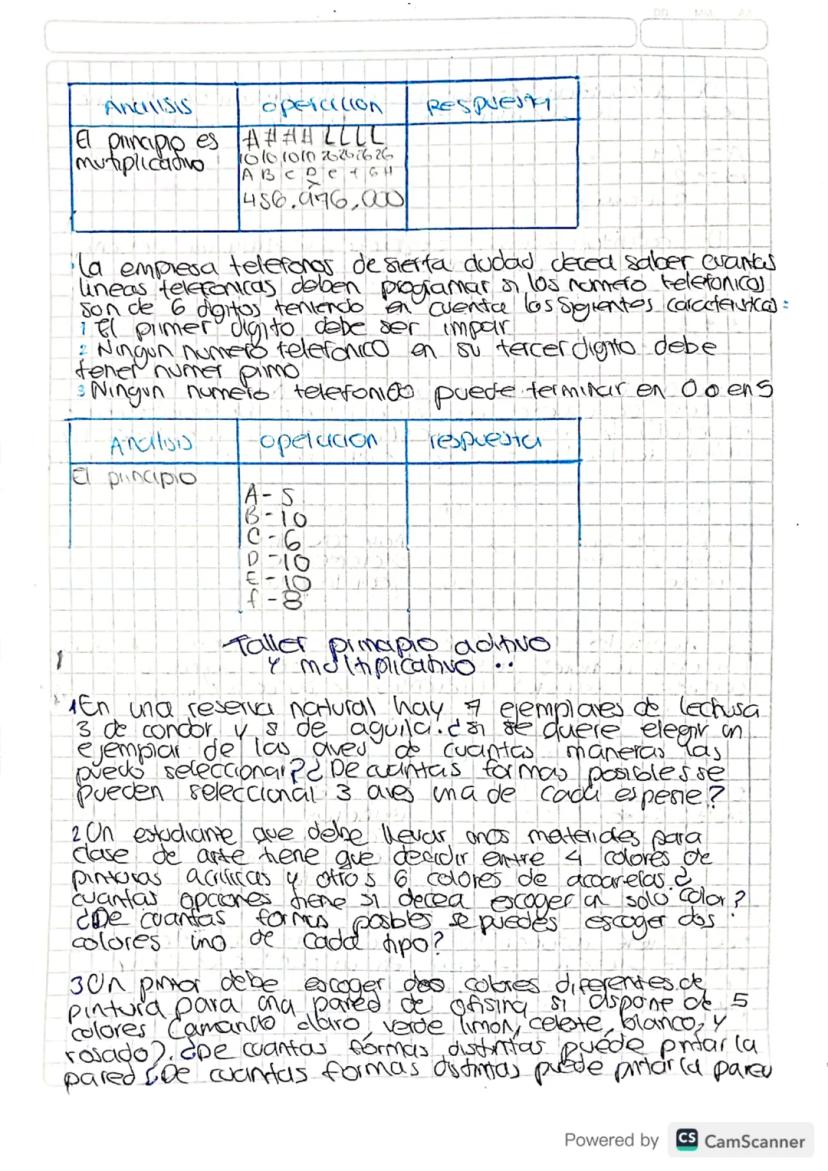 Analisis operacion Respuesta
El principio es
mutiplicativo
# # # # L L L L
10 10 10 10 26 26 26 26
A B C D E F G H
x
456.976,000
La empresa telefonos de sierta ciudad decea saber cuantas
lineas telefonicas deben programar si los numero telefonicos
son de 6 digitos teniendo en cuenta los sigientes caracteristicas:
1 El pimer digito debe ser impar
2 Ningun numero telefonico en su tercer digito debe
tener numer pimo
3 Ningun numero telefonico puede terminar en 0 o en 5
Analisis operacion respuesta
El principio
A - 5
B - 10
C - 6
D - 10
E - 10
f - 8
Taller pimcipio aditivo
y multiplicativo ..
1 En una reserva natural hay 7 ejemplares de lechusa
3 de condor y 8 de aguila. ¿si se quere elegir un
ejemplar de las aves de cuantas maneras las
puedo seleccionar? ¿De cuantas formas posibles se
pueden seleccional 3 aves una de cada espesie?
2 Un estudiante que debe llevar unos materiales para
clase de arte tiene que decidir entre 4 colores de
pinturas acrilicas y otros 6 colores de acoarelas. ¿
cuantas opciones tiene si decea escoger un solo color?
¿De cuantas formas posbles se puedes escoger dos
colores uno de cada tipo?
3 Un pintor debe escoger dos colores diferentes de
pintura para una pared de ofisina si dispone de 5
colores (amarillo claro, verde limon, celeste, blanco, y
rosado). ¿De cuantas formas distintas puede pintar la
pared ¿De cuantas formas distintas puede pintar la pared
Powered by CS CamScanner